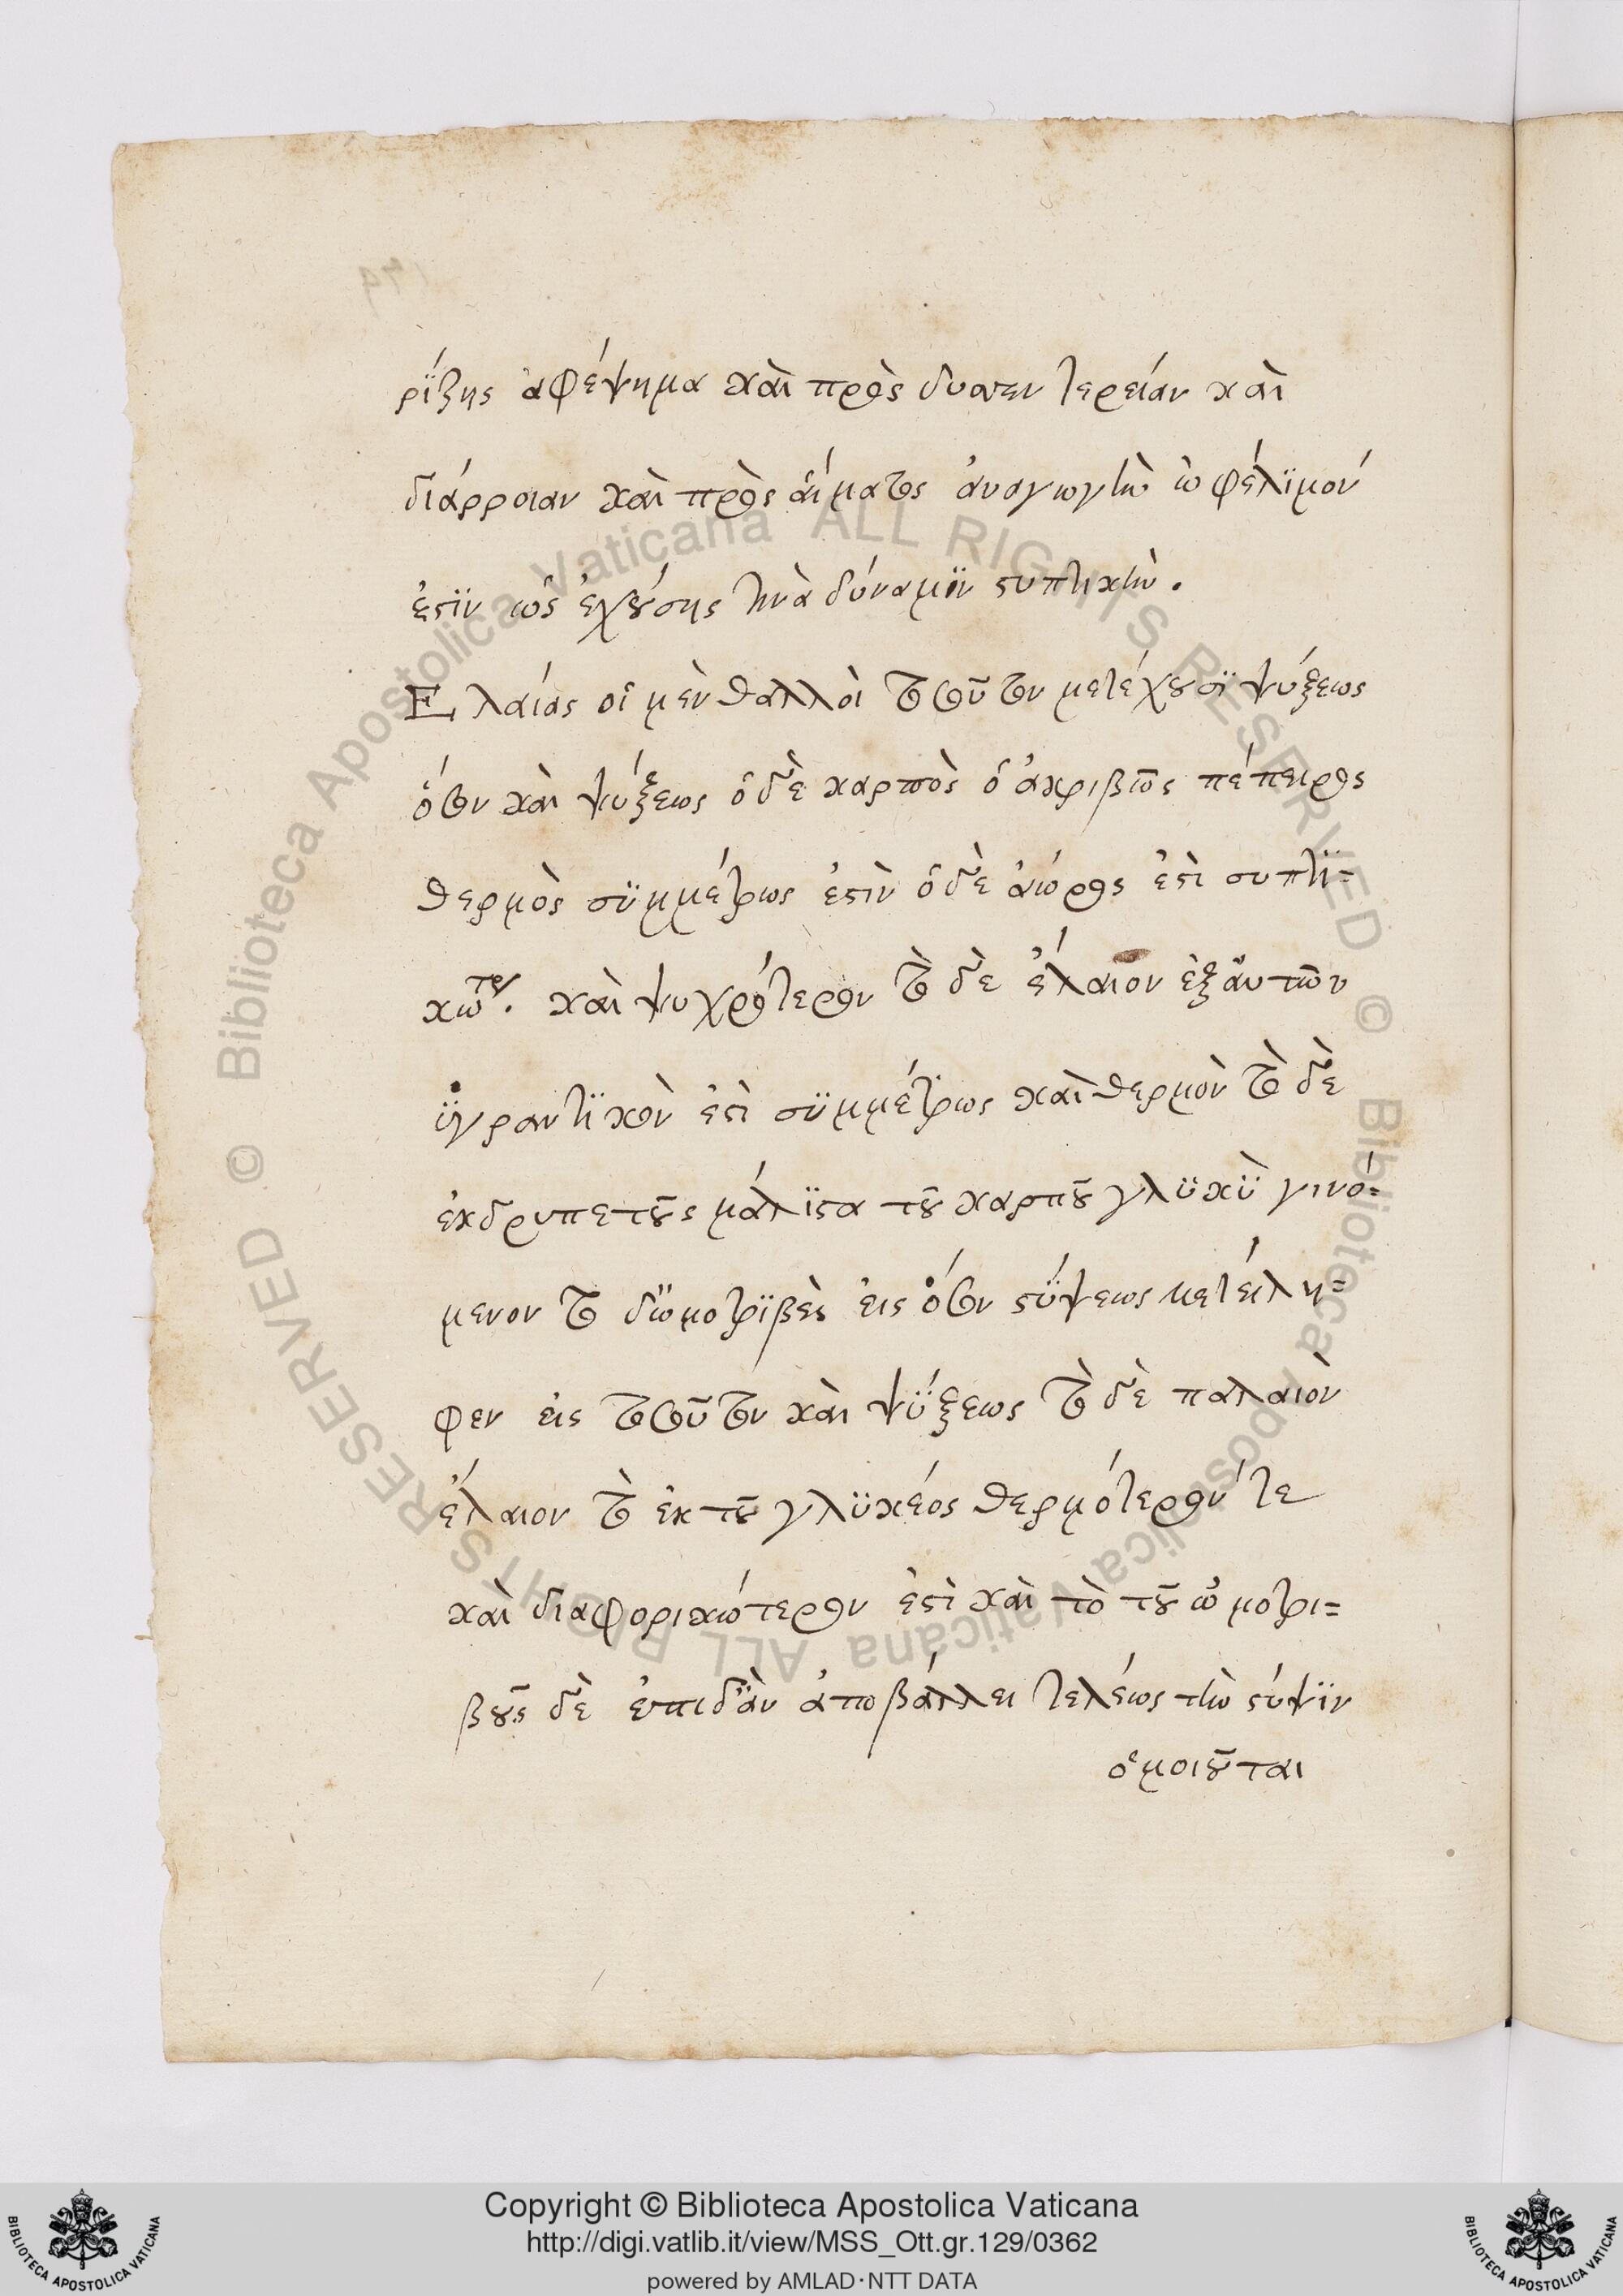 ρίζης ἀφέψημα καὶ πρὸς δυσεντερείαν καὶ
διάρροιαν καὶ πρὸς αἵματος ἀναγωγὴν ὠφέλϊμον
ἐστϊν ὡς ἐχούσης τινὰ δύναμϊν στυπτικήν.
Ελαίας οἱ μὲν θαλλοὶ τοσοῦτον μετέχουσϊ ψύξεως
ὅσον καὶ ψύξεως ὁ δὲ καρπὸς ὁ ἀκριβῶς πέπειρος
θερμὸς σϋμμέτρως ἐστὶν ὁ δὲ ἀώρος ἐστὶ στυπτϊ=
κωτερ. καὶ ψυχρότερον τὸ δὲ ἔλαιον ἐξ αὐτῶν
ὑγραντϊκὸν ἐστὶ σϋμμέτρως καὶ θερμὸν τὸ δὲ
ἐκ δρυπετοῦς μάλϊστα τοῦ καρποῦ γλϋκϋ γινό=
μενον τὸ δ ὠμοτρϊβὲς εἰς ὅσον στύψεως μετείλη=
φεν εἰς τοσοῦτον καὶ ψύξεως τὸ δὲ παλαιὸν
ἔλαιον τὸ ἐκ τοῦ γλϋκέος θερμότερόν τε
καὶ διαφορικώτερον ἐστὶ καὶ τὸ τοῦ ὠμοτρι=
βοῦς δὲ ἐπιδὰν ἀποβάλλει τελέως τὴν στύψϊν
ὁμοιοῦται
Copyright © Biblioteca Apostolica Vaticana
http://digi.vatlib.it/view/MSS_Ott.gr.129/0362
powered by AMLAD·NTT DATA
BIBLIOTECA APOSTOLICA VATICANA
BIBLIOTECA APOSTOLICA VATICANA
© Biblioteca Apostolica Vaticana ALL RIGHTS RESERVED © Biblioteca Apostolica Vaticana ALL RIGHTS RESERVED